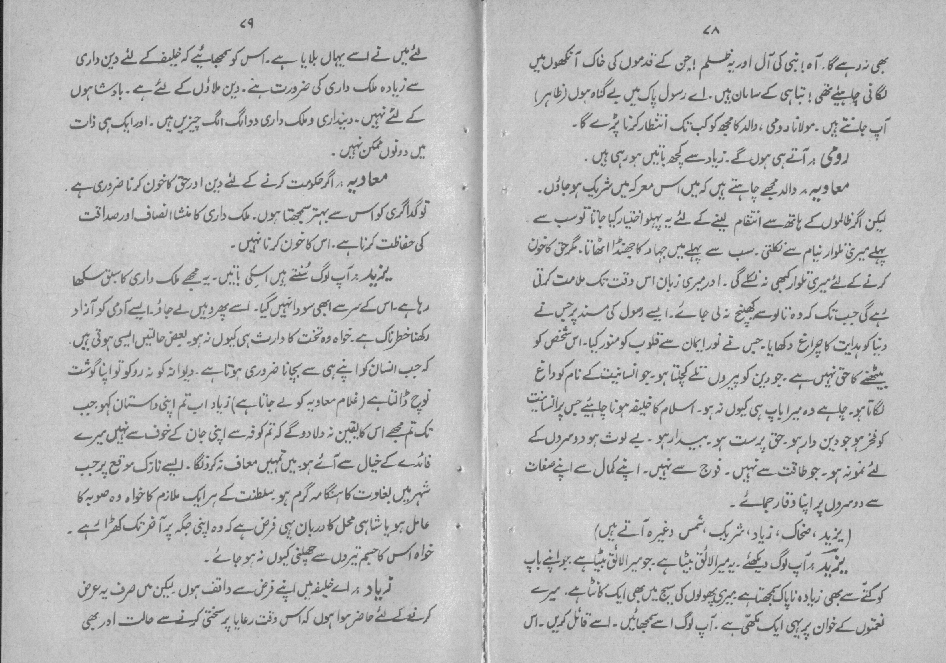 ۷۸
بھی نہ رہے گا۔ آہ! نبی کی آل اور یہ ظلم! جن کے قدموں کی خاک آنکھوں میں
لگانی چاہیئے تھی! تباہی کے سامان ہیں۔ اے رسول پاک میں بے گناہ ہوں (ظاہر)
آپ جانتے ہیں۔ مولانا رومی، والد کا مجھ کو کب تک انتظار کرنا پڑے گا۔
رومی :۔ آتے ہی ہوں گے۔ زیاد سے کچھ باتیں ہو رہی ہیں۔
معاویہ :۔ والد مجھے چاہتے ہیں کہ میں اس معرکہ میں شریک ہو جاؤں۔
لیکن اگر ظالموں کے ہاتھ سے انتقام لینے کے لئے یہ پہلو اختیار کیا جاتا تو سب سے
پہلے میری تلوار نیام سے نکلتی۔ سب سے پہلے میں جہاد کا جھنڈا اٹھاتا۔ مگر حق کا خون
کرنے کے لئے میری تلوار کبھی نہ نکلے گی۔ اور میری زبان اس وقت تک ملامت کرتی
رہے گی جب تک کہ وہ تالو سے کھینچ نہ لی جائے۔ ایسے رسول کی مسند پر جس نے
دنیا کو ہدایت کا چراغ دکھایا۔ جس نے نور ایمان سے قلوب کو منور کیا۔ اس شخص کو
بیٹھنے کا حق نہیں ہے۔ جو دین کو پیروں تلے کچلتا ہو۔ جو انسانیت کے نام کو داغ
لگاتا ہو۔ چاہے وہ میرا باپ ہی کیوں نہ ہو۔ اسلام کا خلیفہ ہونا چاہیئے جس پر انسانیت
کو فخر ہو جو دین دار ہو۔ حق پرست ہو۔ بیدار ہو۔ بے لوث ہو دوسروں کے
لئے نمونہ ہو۔ جو طاقت سے نہیں۔ فوج سے نہیں۔ اپنے کمال سے اپنے صفات
سے دوسروں پر اپنا وقار جمائے۔
(یزید، ضحاک، زیاد، شریک، شمس وغیرہ آتے ہیں)
یزید :۔ آپ لوگ دیکھئے۔ یہ میرا لائق بیٹا ہے۔ جو میرا لائق بیٹا ہے جو اپنے باپ
کو کتے سے بھی زیادہ ناپاک سمجھتا ہے میری پھولوں کی سیج میں بھی ایک کانٹا ہے۔ میرے
نعمتوں کے خوان پر یہی ایک مکھی ہے۔ آپ لوگ اسے سمجھائیں۔ اسے قائل کریں۔ اس
۷۹
لئے میں نے اسے یہاں بلایا ہے۔ اس کو سمجھائیے کہ خلیفہ کے لئے دین داری
سے زیادہ ملک داری کی ضرورت ہے۔ دین ملاؤں کے لئے ہے۔ بادشاہوں
کے لئے نہیں۔ دینداری و ملک داری دو الگ الگ چیزیں ہیں۔ اور ایک ہی ذات
میں دونوں ممکن نہیں۔
معاویہ :۔ اگر حکومت کرنے کے لئے دین اور حق کا خون کرنا ضروری ہے۔
تو گداگری کو اس سے بہتر سمجھتا ہوں۔ ملک داری کا منشا انصاف اور صداقت
کی حفاظت کرنا ہے۔ اس کا خون کرنا نہیں۔
یزید :۔ آپ لوگ سنتے ہیں اسکی باتیں۔ یہ مجھے ملک داری کا سبق سکھا
رہا ہے۔ اس کے سر سے ابھی سودا نہیں گیا۔ اسے پھر وہیں لے جاؤ۔ ایسے آدمی کو آزاد
رکھنا خطرناک ہے۔ خواہ وہ تخت کا وارث ہی کیوں نہ ہو۔ بعض حالتیں ایسی ہوتی ہیں،
کہ جب انسان کو اپنے ہی سے بچانا ضروری ہوتا ہے۔ دیوانہ کو نہ روکو تو اپنا گوشت
نوچ ڈالتا ہے (غلام معاویہ کو لے جاتا ہے) زیاد اب تم اپنی داستان کہو۔ جب
تک تم مجھے اس کا یقین نہ دلا دو گے کہ تم کوفہ سے اپنی جان کے خوف سے نہیں میرے
فائدے کے خیال سے آئے ہو۔ میں تمہیں معاف نہ کرونگا۔ ایسے نازک موقع پر جب
شہر میں بغاوت کا ہنگامہ گرم ہو۔ سلطنت کے ہر ایک ملازم کا خواہ وہ صوبہ کا
عامل ہو یا شاہی محل کا دربان یہی فرض ہے کہ وہ اپنی جگہ پر آخر تک کھڑا رہے۔
خواہ اس کا جسم تیروں سے چھلنی کیوں نہ ہو جائے۔
زیاد :۔ اے خلیفہ میں اپنے فرض سے واقف ہوں۔ لیکن میں صرف یہ عرض
کرنے کے لئے حاضر ہوا ہوں کہ اس وقت رعایا پر سختی کرنے سے حالت اور بھی